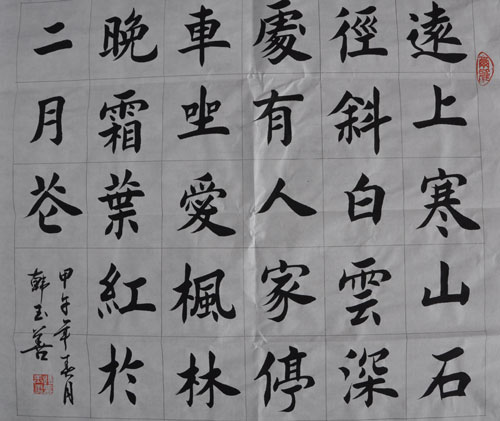 遠上寒山石
徑斜白雲深
處有人家停
車坐愛楓林
晚霜葉紅於
二月花
甲午年春月
韓玉善